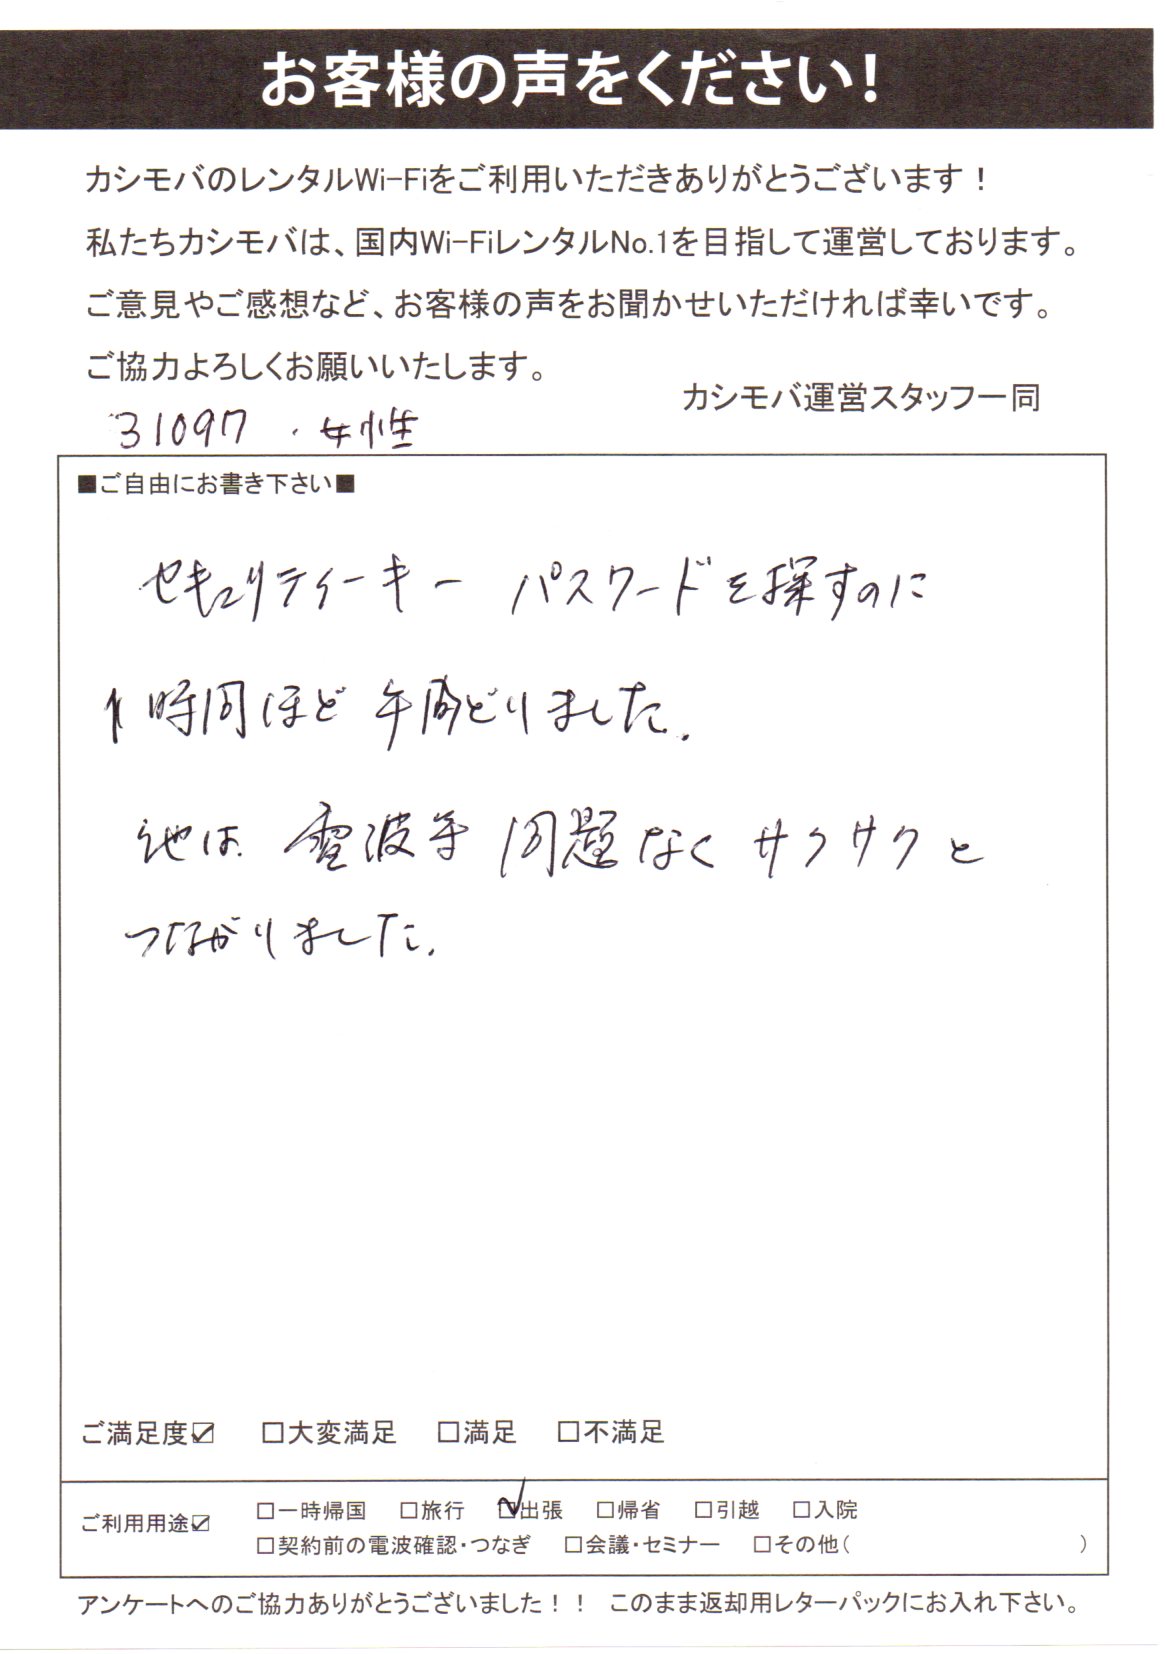 お客様の声をください!
カシモバのレンタルWi-Fiをご利用いただきありがとうございます！
私たちカシモバは、国内Wi-FiレンタルNo.1を目指して運営しております。
ご意見やご感想など、お客様の声をお聞かせいただければ幸いです。
ご協力よろしくお願いいたします。
カシモバ運営スタッフ一同
31097 ・女性
■ご自由にお書き下さい■
セキュリティーキー パスワードを探すのに
1時間ほど 手間どりました。
他は 電波等 問題なく サクサクと
つながりました。
ご満足度☑ □大変満足 □満足 □不満足
ご利用用途☑ □一時帰国 □旅行 ☑出張 □帰省 □引越 □入院
□契約前の電波確認・つなぎ □会議・セミナー □その他( )
アンケートへのご協力ありがとうございました！！ このまま返却用レターパックにお入れ下さい。